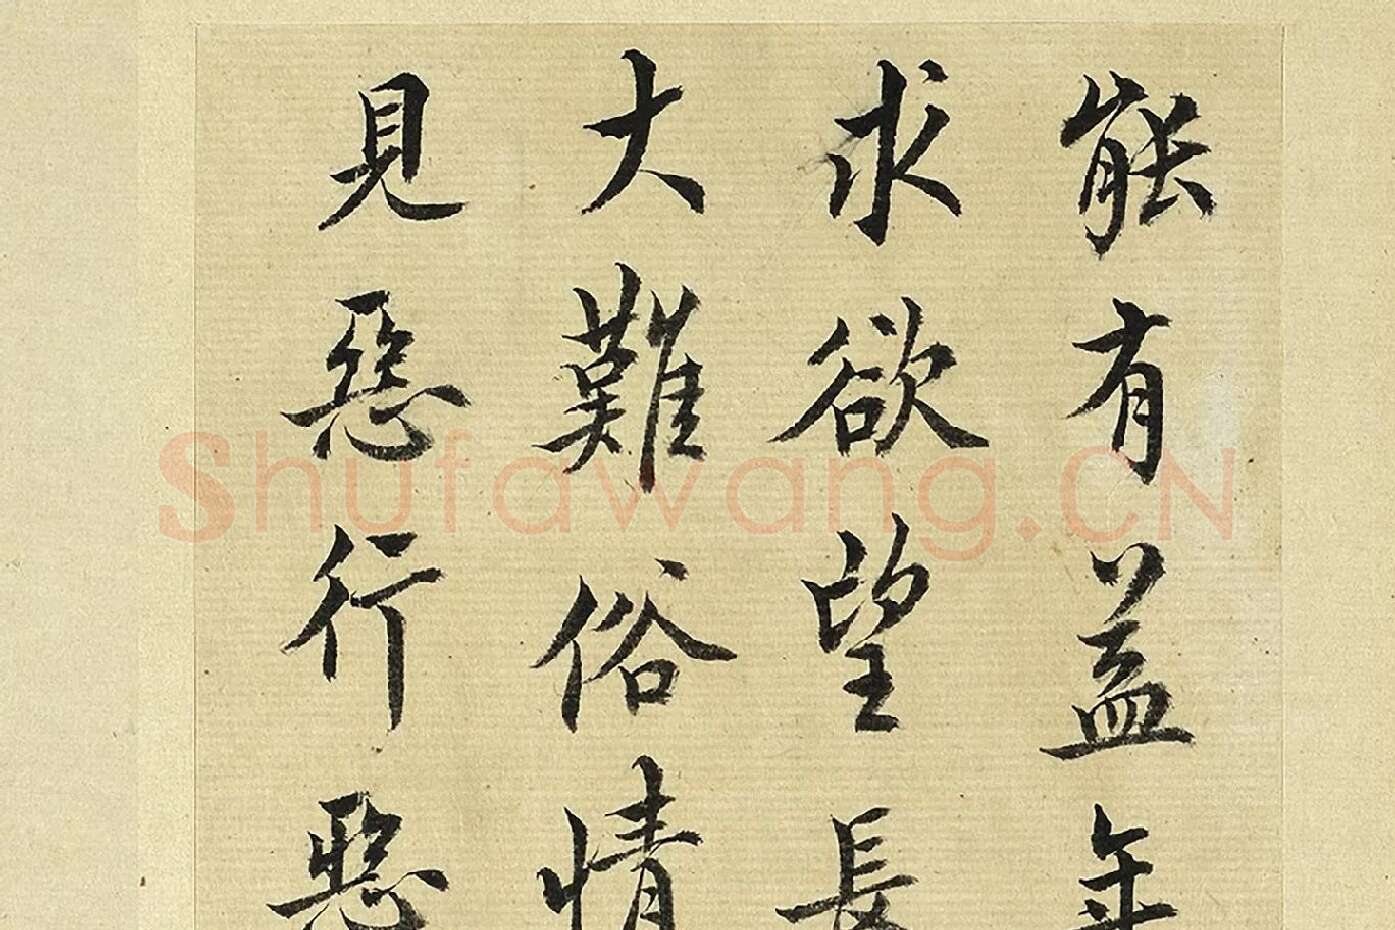 能有益年
求欲望長
大難俗情
見惡行惡
Shufawang.CN